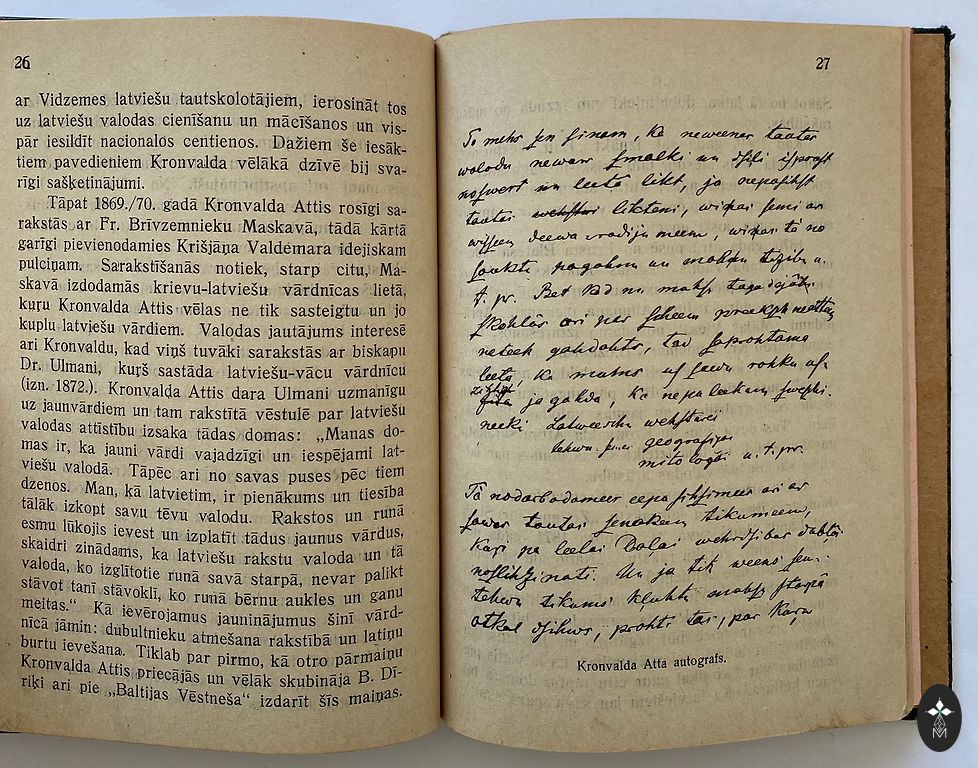 26
ar Vidzemes latviešu tautskolotājiem, ierosināt tos
uz latviešu valodas cienīšanu un mācīšanos un vis-
pār iesildīt nacionalos centienos. Dažiem še iesāk-
tiem pavedieniem Kronvalda vēlākā dzīvē bij sva-
rīgi sašķetinājumi.
Tāpat 1869./70. gadā Kronvalda Attis rosīgi sa-
rakstās ar Fr. Brīvzemnieku Maskavā, tādā kārtā
garīgi pievienodamies Krišjāņa Valdemara idejiskam
pulciņam. Sarakstīšanās notiek, starp citu, Ma-
skavā izdodamās krievu-latviešu vārdnīcas lietā,
kuŗu Kronvalda Attis vēlas ne tik sasteigtu un jo
kuplu latviešu vārdiem. Valodas jautājums interesē
ari Kronvaldu, kad viņš tuvāki sarakstās ar biskapu
Dr. Ulmani, kuŗš sastāda latviešu-vācu vārdnīcu
(izn. 1872.). Kronvalda Attis dara Ulmani uzmanīgu
uz jaunvārdiem un tam rakstītā vēstulē par latviešu
valodas attīstību izsaka tādas domas: „Manas do-
mas ir, ka jauni vārdi vajadzīgi un iespējami lat-
viešu valodā. Tāpēc ari no savas puses pēc tiem
dzenos. Man, kā latvietim, ir pienākums un tiesība
tālāk izkopt savu tēvu valodu. Rakstos un runā
esmu lūkojis ievest un izplatīt tādus jaunus vārdus,
skaidri zinādams, ka latviešu rakstu valoda un tā
valoda, ko izglītotie runā savā starpā, nevar palikt
stāvot tanī stāvoklī, ko runā bērnu aukles un ganu
meitas.“ Kā ievērojamus jauninājumus šinī vārd-
nīcā jāmin: dubultnieku atmešana rakstībā un latiņu
burtu ievešana. Tiklab par pirmo, kā otro pārmaiņu
Kronvalda Attis priecājās un vēlāk skubināja B. Dī-
riķi ari pie „Baltijas Vēstneša“ izdarīt šīs maiņas.
27
To mehs sen sinam, ka neweenas tautas
walodu newar smalki un dsili isprast
noswert un leetā likt, ja nepasihst
tautas likteni, wiņas semi ar
wiseem deewa radijumeem, wiņas tā no
saukto pagahni un mahņu tizibu u.
t. pr. Bet kad nu muhsu tagadejās
skohlās ori par scheem preekschmetteem
neteek gahdahts, tad saprohtama
leeta, ka mums us sawu rohku us
ja gahda, ka nepaleekam swesch-
neeki Latweeschu wehsturē
tehwu semes geografijā
mitologijā u. t. pr.
Tā nodarbodamees eepasihsimees ari ar
sawas tautas senakeem tikumeem,
kaŗi pa leelai daļai wehrdsibas dabtā
noslihzinati. Un ja tik weens sen-
tehwu tikums kluhtu muhsu starpā
atkal dsihws, prohti tas, par kaŗu
Kronvalda Atta autografs.
M